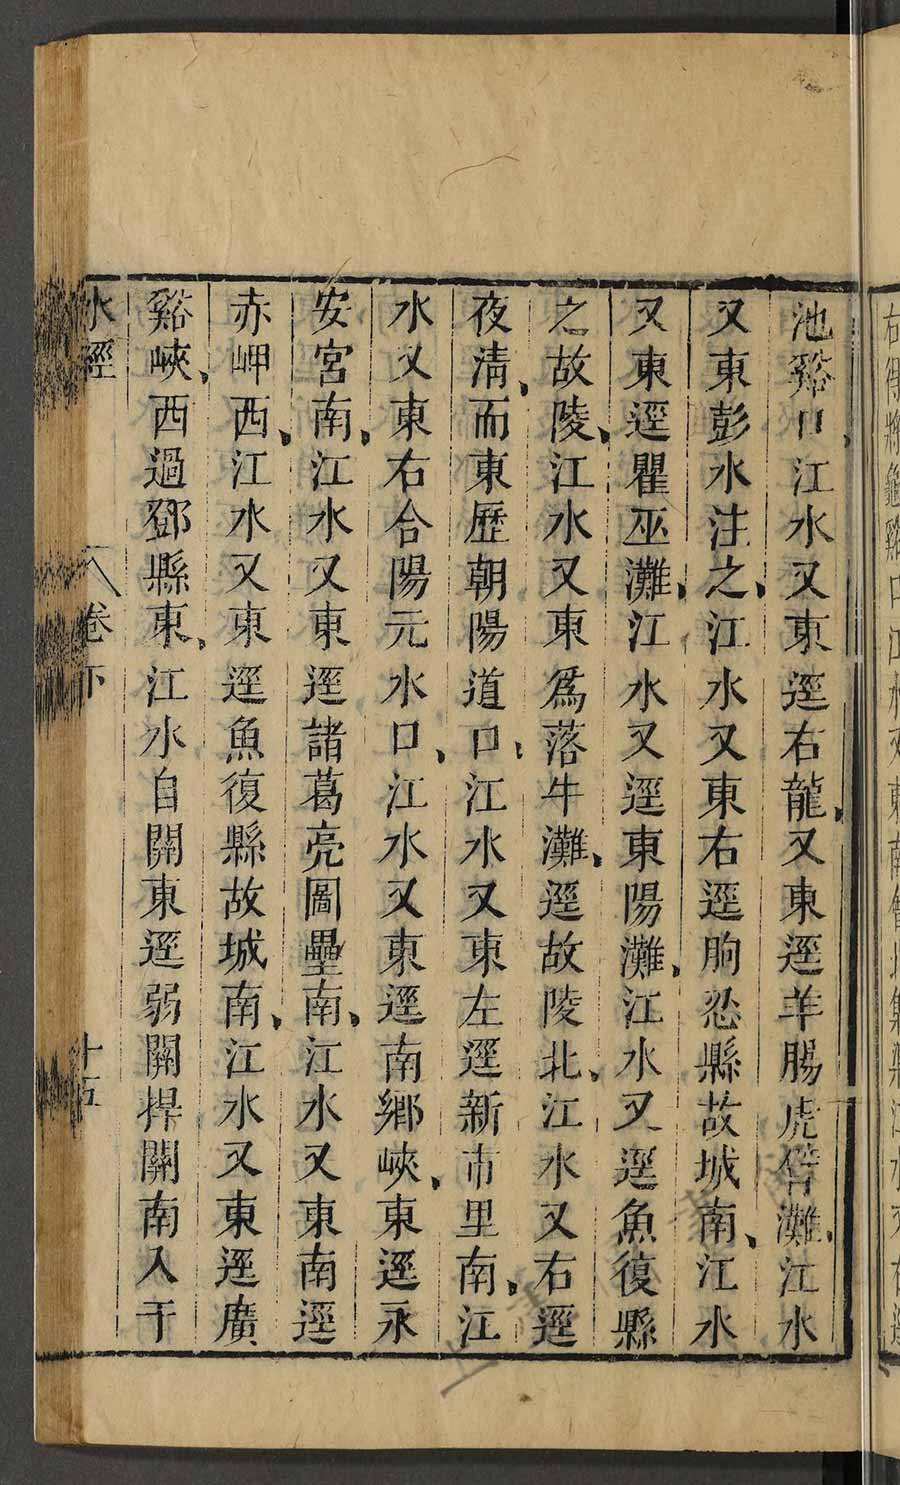 池谿口江水又東逕右龍又東逕羊腸虎臂灘江水
又東彭水注之江水又東右逕朐忍縣故城南江水
又東逕瞿巫灘江水又逕東陽灘江水又逕魚復縣
之故陵江水又東爲落牛灘逕故陵北江水又右逕
夜清而東歷朝陽道口江水又東左逕新市里南江
水又東右合陽元水口江水又東逕南鄉峽東逕永
安宮南江水又東逕諸葛亮圖壘南江水又東南逕
赤岬西江水又東逕魚復縣故城南江水又東逕廣
谿峽西過鄧縣東江水自關東逕弱關捍關南入于
水經 卷下 十五